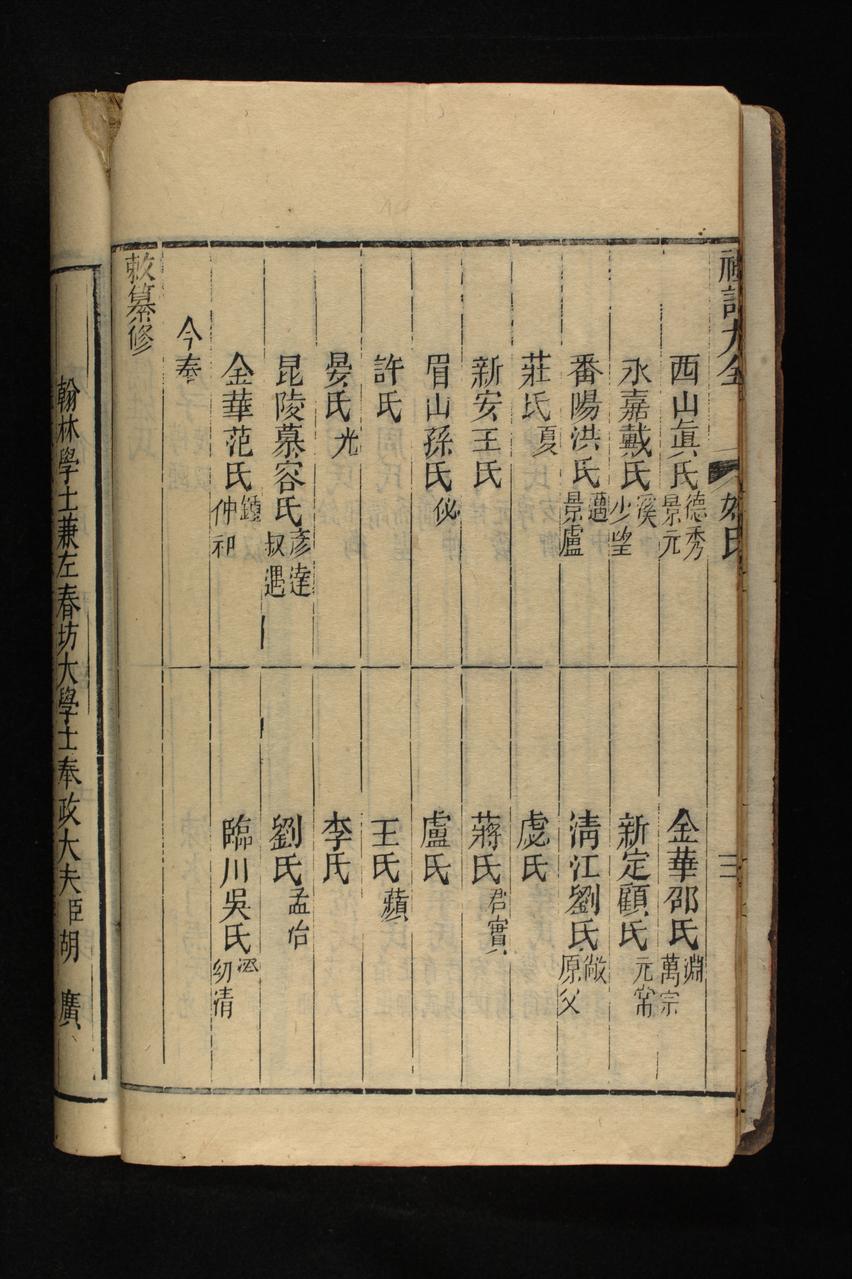 禮記大全 姓氏 三
西山眞氏 德秀 景元 金華邵氏 淵 萬宗
永嘉戴氏 溪 少望 新定顧氏 元常
番陽洪氏 邁 景盧 清江劉氏 敞 原父
莊氏 夏 虙氏
新安王氏 蔣氏 君實
眉山孫氏 佖 盧氏
許氏 王氏 蘋
晏氏 光 李氏
昆陵慕容氏 彥逹 叔遇 劉氏 孟治
金華范氏 鍾 仲和 臨川吳氏 澄 幼清
今奉
敕纂修
翰林學士兼左春坊大學士奉政大夫臣胡 廣